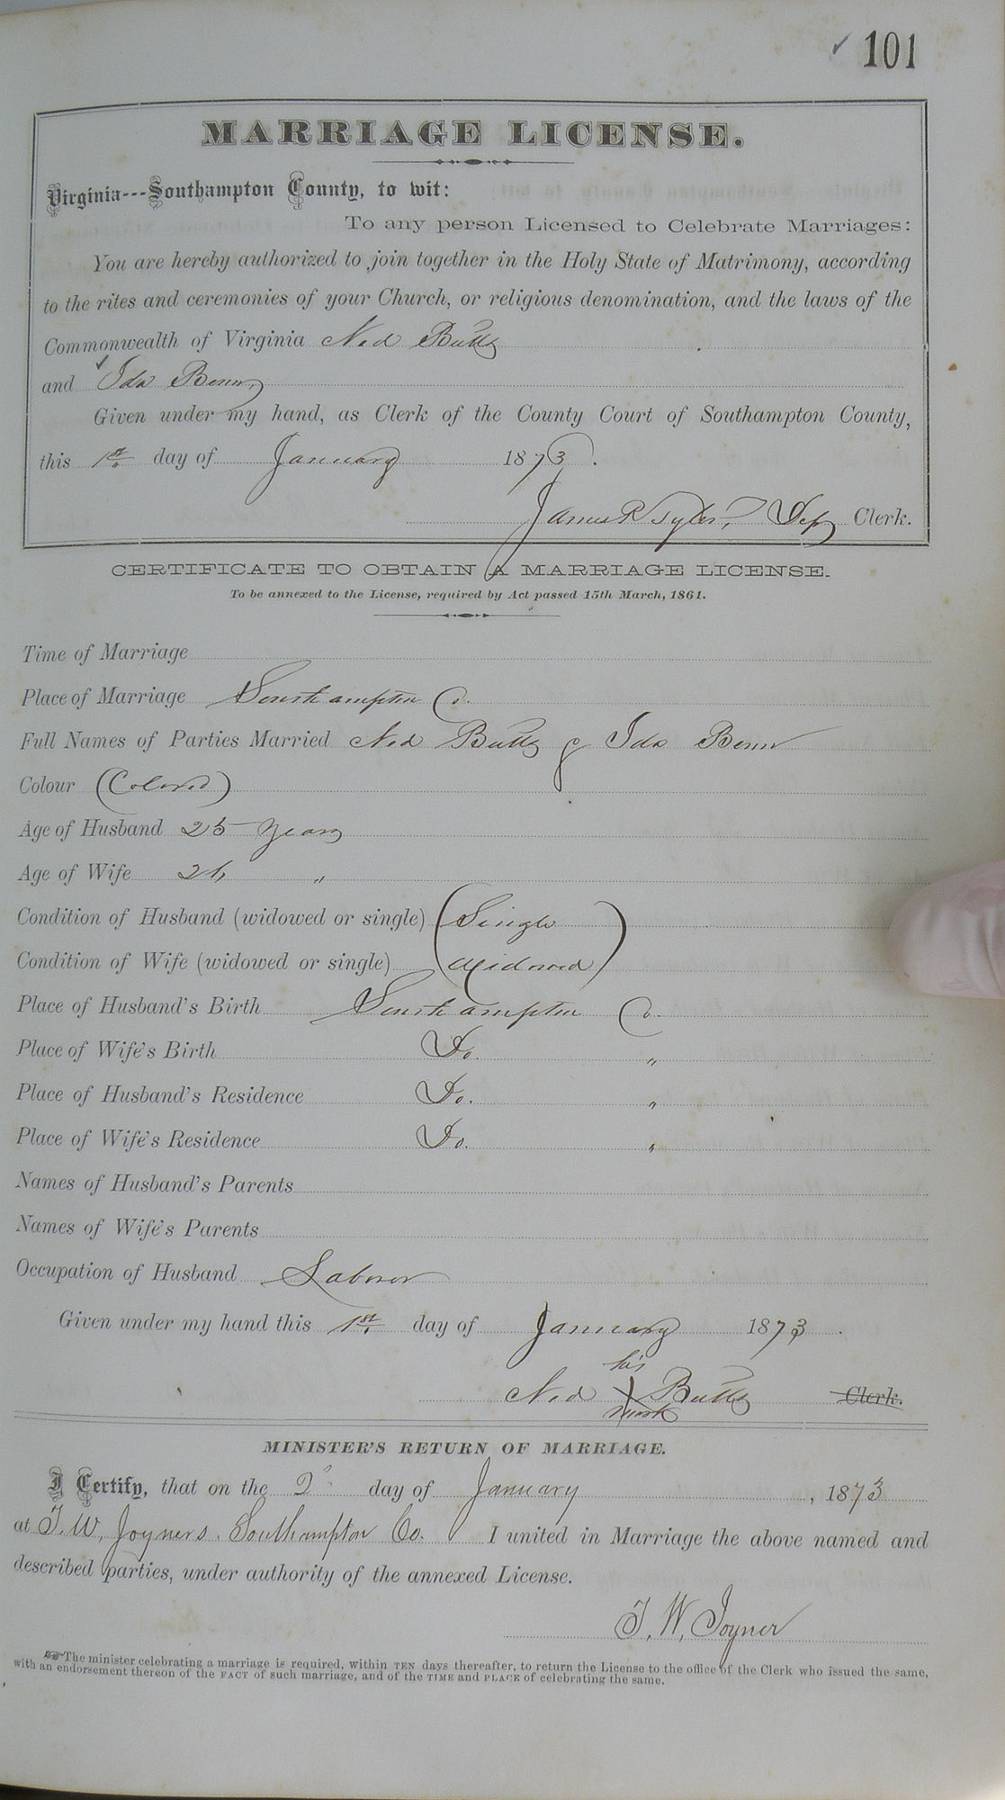 ✓ 101
MARRIAGE LICENSE.
Virginia---Southampton County, to wit:
To any person Licensed to Celebrate Marriages:
You are hereby authorized to join together in the Holy State of Matrimony, according
to the rites and ceremonies of your Church, or religious denomination, and the laws of the
Commonwealth of Virginia Ned Butts
and Ida Benn,
Given under my hand, as Clerk of the County Court of Southampton County,
this 1st day of January 1873.
James R Tyler, Dep Clerk.
CERTIFICATE TO OBTAIN A MARRIAGE LICENSE.
To be annexed to the License, required by Act passed 15th March, 1861.
Time of Marriage
Place of Marriage Southampton Co.
Full Names of Parties Married Ned Butts & Ida Benn
Colour (Colored)
Age of Husband 25 years
Age of Wife "
Condition of Husband (widowed or single) (Single
Condition of Wife (widowed or single) Widowed)
Place of Husband's Birth Southampton Co.
Place of Wife's Birth Do. "
Place of Husband's Residence Do. "
Place of Wife's Residence Do. "
Names of Husband's Parents
Names of Wife's Parents
Occupation of Husband Laborer
Given under my hand this 1st day of January 1873.
his
Ned X Butts Clerk.
mark
MINISTER'S RETURN OF MARRIAGE.
I Certify, that on the 2 day of January, 1873
at T. W. Joyners. Southampton Co. I united in Marriage the above named and
described parties, under authority of the annexed License.
T. W. Joyner
☞The minister celebrating a marriage is required, within TEN days thereafter, to return the License to the office of the Clerk who issued the same,
with an endorsement thereon of the FACT of such marriage, and of the TIME and PLACE of celebrating the same.